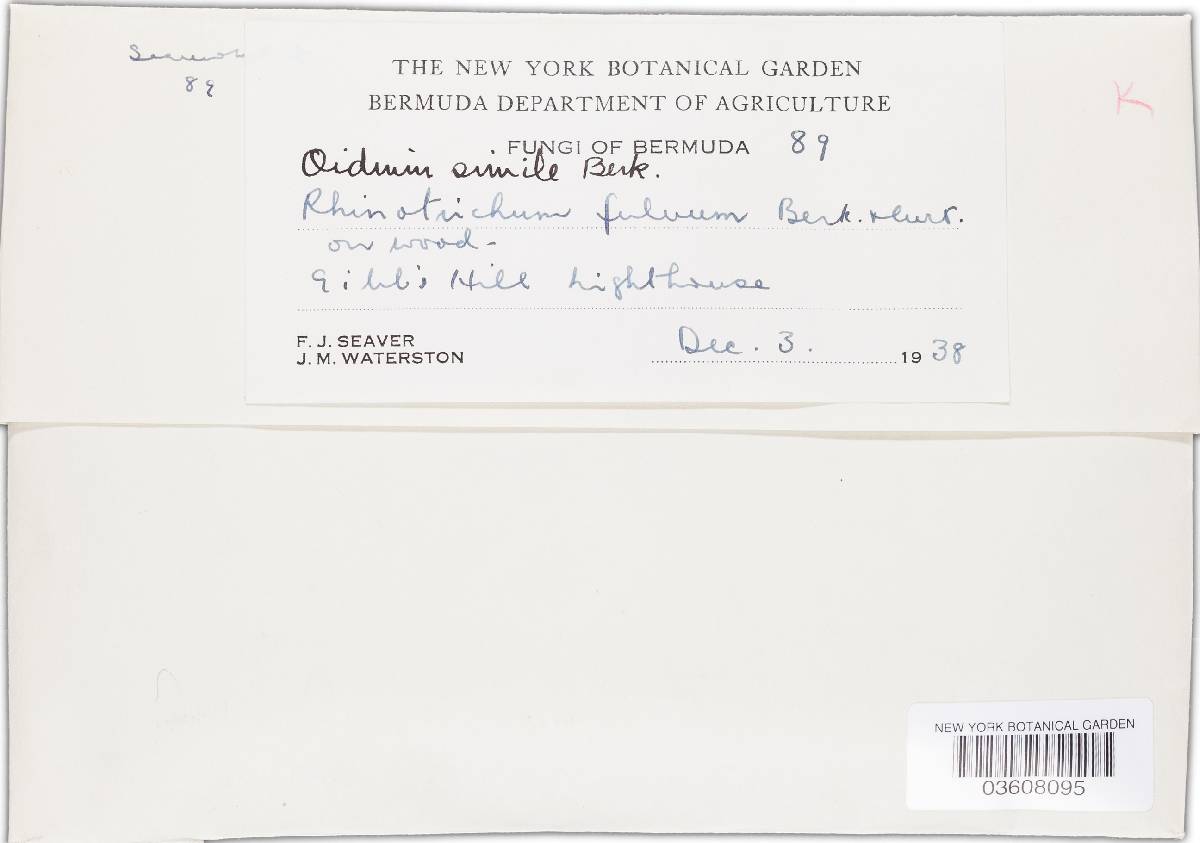 89
K
THE NEW YORK BOTANICAL GARDEN
BERMUDA DEPARTMENT OF AGRICULTURE
FUNGI OF BERMUDA 89
Oidium simile Berk.
Rhinotrichum fulvum Berk. & Curt.
on wood -
Gibb's Hill Lighthouse
F. J. SEAVER
J. M. WATERSTON
Dec. 3. 1938
NEW YORK BOTANICAL GARDEN
03608095